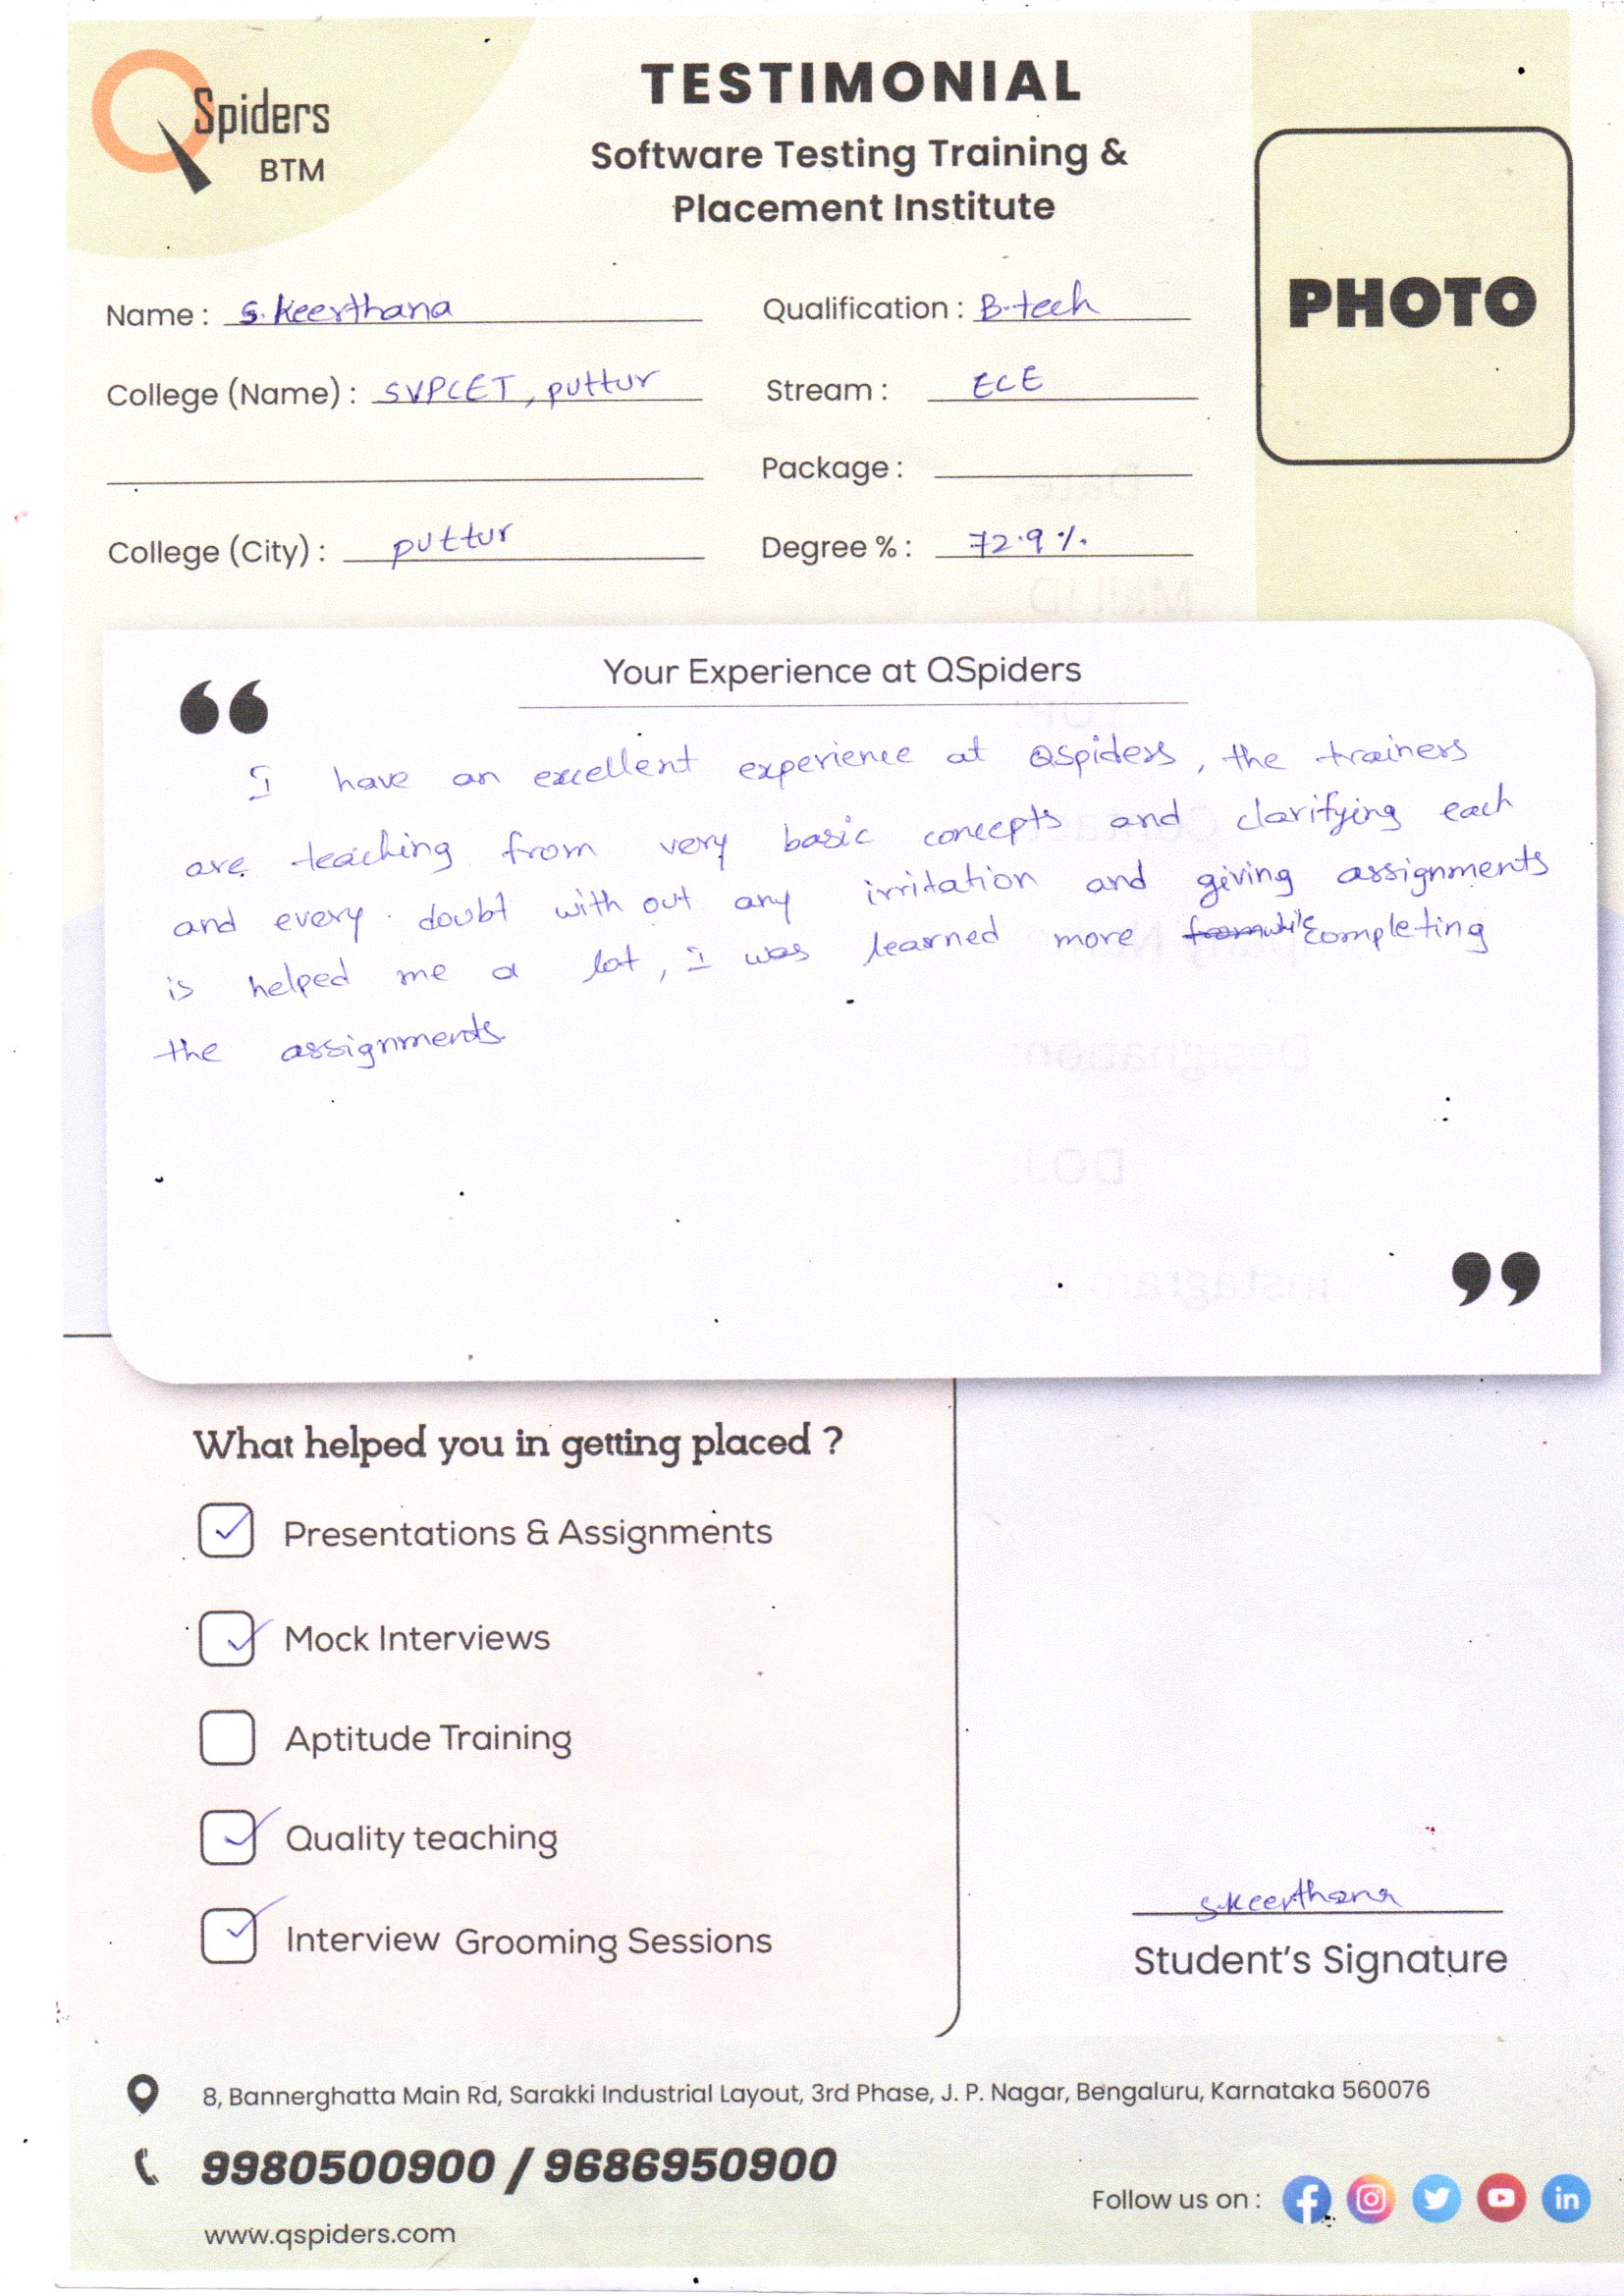 QSpiders
BTM
TESTIMONIAL
Software Testing Training &
Placement Institute
PHOTO
Name : S. Keerthana
Qualification : B-tech
College (Name) : SVPCET, puttur
Stream : ECE
Package :
College (City) : puttur
Degree % : 72.9%
Your Experience at QSpiders
“
I have an excellent experience at QSpiders, the trainers
are teaching from very basic concepts and clarifying each
and every doubt with out any irritation and giving assignments
is helped me a lot, i was learned more while completing
the assignments
”
What helped you in getting placed ?
Presentations & Assignments
Mock Interviews
Aptitude Training
Quality teaching
Interview Grooming Sessions
S.Keerthana
Student's Signature
8, Bannerghatta Main Rd, Sarakki Industrial Layout, 3rd Phase, J. P. Nagar, Bengaluru, Karnataka 560076
9980500900 / 9686950900
www.qspiders.com
Follow us on :